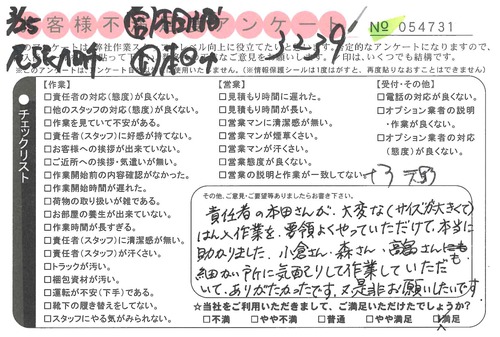 3/25
お客様不満足アンケート
№ 054731
【作業】
□責任者の対応(態度)が良くない。
□他のスタッフの対応(態度)が良くない。
□作業を見ていて不安がある。
□責任者(スタッフ)に好感が持てない。
□お客様への挨拶が出来ていない。
□ご近所への挨拶・気遣いが無い。
□作業開始前の内容確認がなかった。
□作業開始時間が遅れた。
□荷物の取り扱いが雑である。
□お部屋の養生が出来ていない。
□作業時間が長すぎる。
□責任者(スタッフ)に清潔感が無い。
□責任者(スタッフ)が汗くさい。
□トラックが汚い。
□梱包資材が汚い。
□運転が不安(下手)である。
□靴下の履き替えをしてない。
□スタッフにやる気がみられない。
【営業】
□見積もり時間に遅れた。
□見積もり時間が長い。
□営業マンに清潔感が無い。
□営業マンが煙草くさい。
□営業マンが汗くさい。
□営業態度が良くない。
□営業の説明と作業が一致してない。
【受付・その他】
□電話の対応が良くない。
□オプション業者の説明
・作業が良くない。
□オプション業者の対応
(態度)が良くない。
チェックリスト
その他、ご意見・ご要望等ありましたらお書き下さい。
責任者の本田さんが、大変な(サイズが大きくて)
はん入作業を、要領よくやっていただけて、本当に
助かりました。小倉さん、森さん、宮髙さんにも
細かい所に気配りして作業していただ
いて、ありがたかったです。又是非お願いしたいです。
☆当社をご利用いただきまして、ご満足いただけたでしょうか?
□不満 □やや不満 □普通 □やや満足 □満足